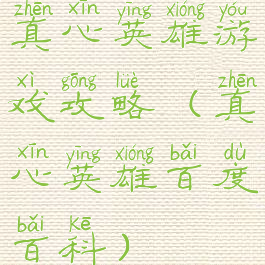 zhēn xīn yīng xióng yóu
真心英雄游
xì gōng lüè zhēn
戏攻略(真
xīn yīng xióng bǎi dù
心英雄百度
bǎi kē
百科)